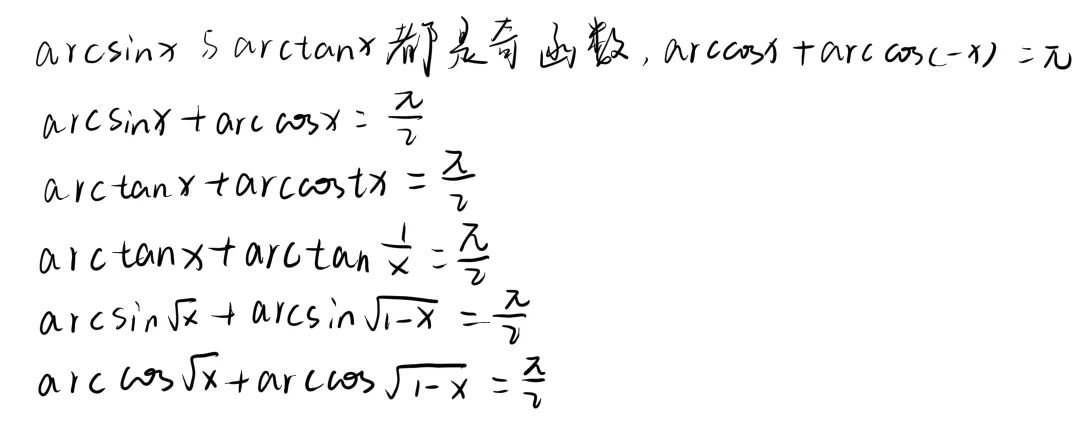 arcsinx与arctanx都是奇函数,arccosx+arccos(-x)=π
arcsinx+arccosx=π/2
arctanx+arccostx=π/2
arctanx+arctan1/x=π/2
arcsin√x+arcsin√(1-x)=π/2
arccos√x+arccos√(1-x)=π/2